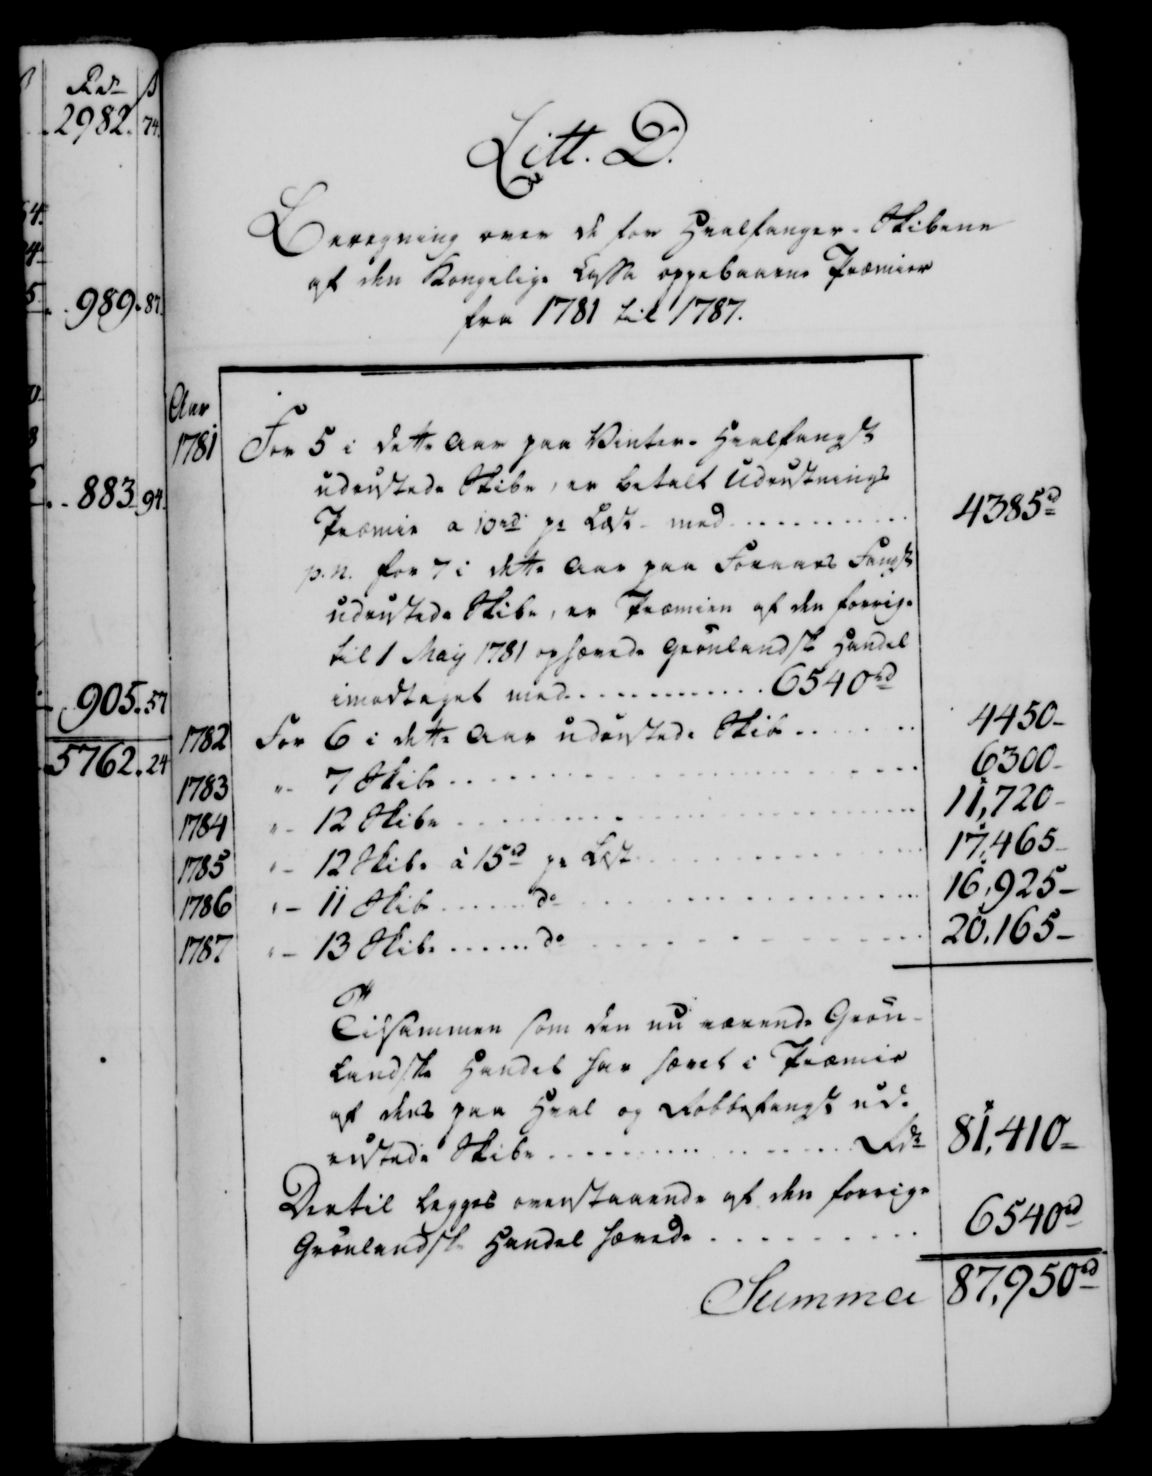 Rdr ß
2982. 74.
989. 87.
883. 94.
905. 57
5762. 24
Litt. D.
Beregning over de for Hvalfanger-Skibene
af den Kongelige Cassa oppebaarne Præmier
fra 1781 til 1787.
Aar
1781 For 5 i dette Aar paa Vinter-Hvalfangst
udrustede Skibe, er betalt Udrustnings
Præmie a 10 rd pr Læst med . . . . . . . . . . . 4385 rd
p. n. for 7 i dette Aar paa Foraars Fangst
udrustede Skibe, er Præmien af den forrige
til 1 May 1781 ophævede Grønlandsk Handel
imodtaget med . . . . . . . . . . . . 6540 rd
1782 For 6 i dette Aar udrustede Skib . . . . . . . 4450-
1783 " - 7 Skibe . . . . . . . . . . . . . . . . . . . . 6300-
1784 " - 12 Skibe . . . . . . . . . . . . . . . . . . . . 11,720-
1785 " - 12 Skibe à 15 rd pr Læst . . . . . . . . . . . 17,465-
1786 " - 11 Skib . . . . . . do . . . . . . . . . . . . . . 16,925-
1787 " - 13 Skibe . . . . . . do . . . . . . . . . . . . . 20,165-
Tilsammen som den nu værende Grøn-
landske Handel har hævet i Præmie
af dens paa Hval og Robbefangst ud-
rustede Skibe . . . . . . . . . . . . . . . . Rdr 81,410-
Dertil legges ovenstaaende af den forrige
Grønlandsk Handel hævede . . . . . . . . . . 6540 rd
Summa 87,950 rd